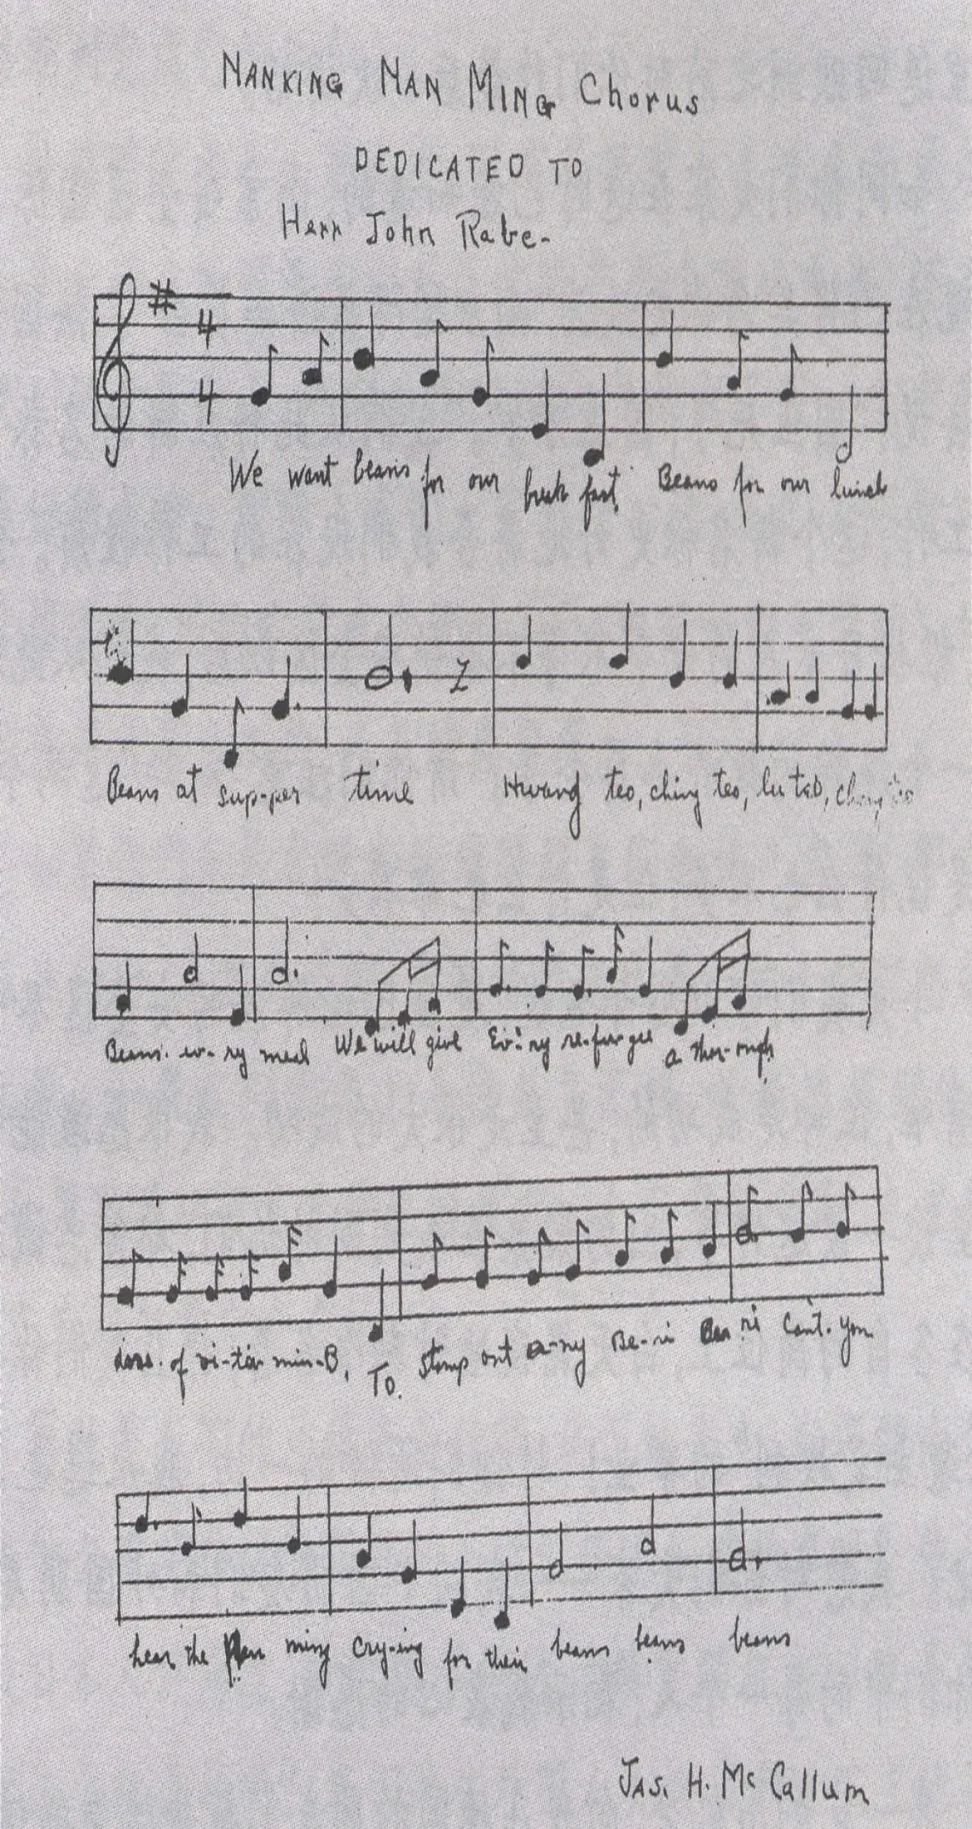 NANKING NAN MING Chorus
DEDICATED TO
Herr John Rabe-
4
4
We want beans for our break fast. Beans for our lunch
Beans at sup-per time Hwang teo, ching teo, lu teo,
Beans. ev-ry meal We will give Ev'ry re-fu-gee a thor-ough
dose. of vi-ta-min-B, To. Stamp out a-ny Be-ri Be-ri Can't. you
hear the Nan ming cry-ing for their beans beans beans
Jas. H. Mc Callum